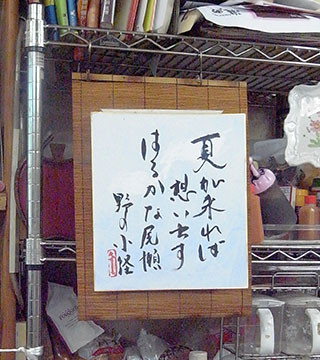 夏が来れば
想い出す
はるかな尾瀬
野の小経